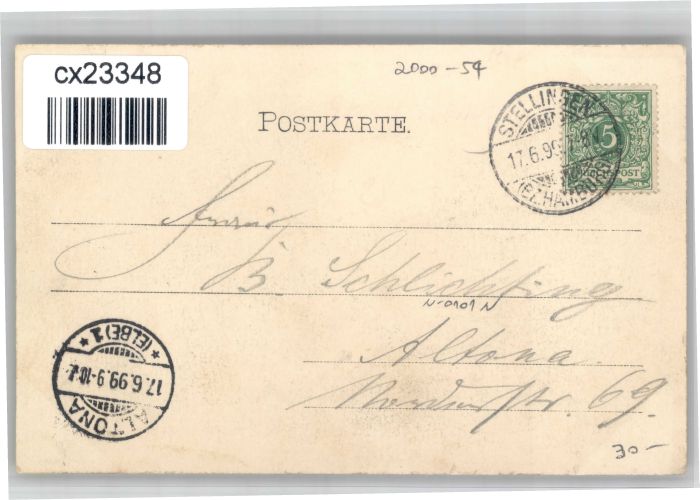 cx23348
2000-54
POSTKARTE.
STELLINGEN
17.6.99.
(BZ. HAMBURG)
5
REICHSPOST
B. Schlichting
N-0101 N
Altona.
69.
ALTONA
17.6.99.9-10
* (ELBE) 1 *
30-